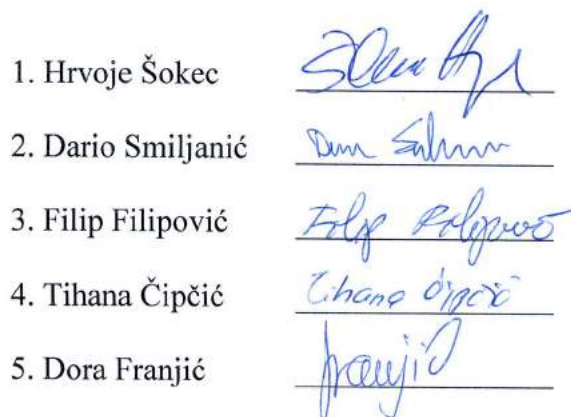 1. Hrvoje Šokec
2. Dario Smiljanić
3. Filip Filipović Filip Filipović
4. Tihana Čipčić Tihana Čipčić
5. Dora Franjić Franjić